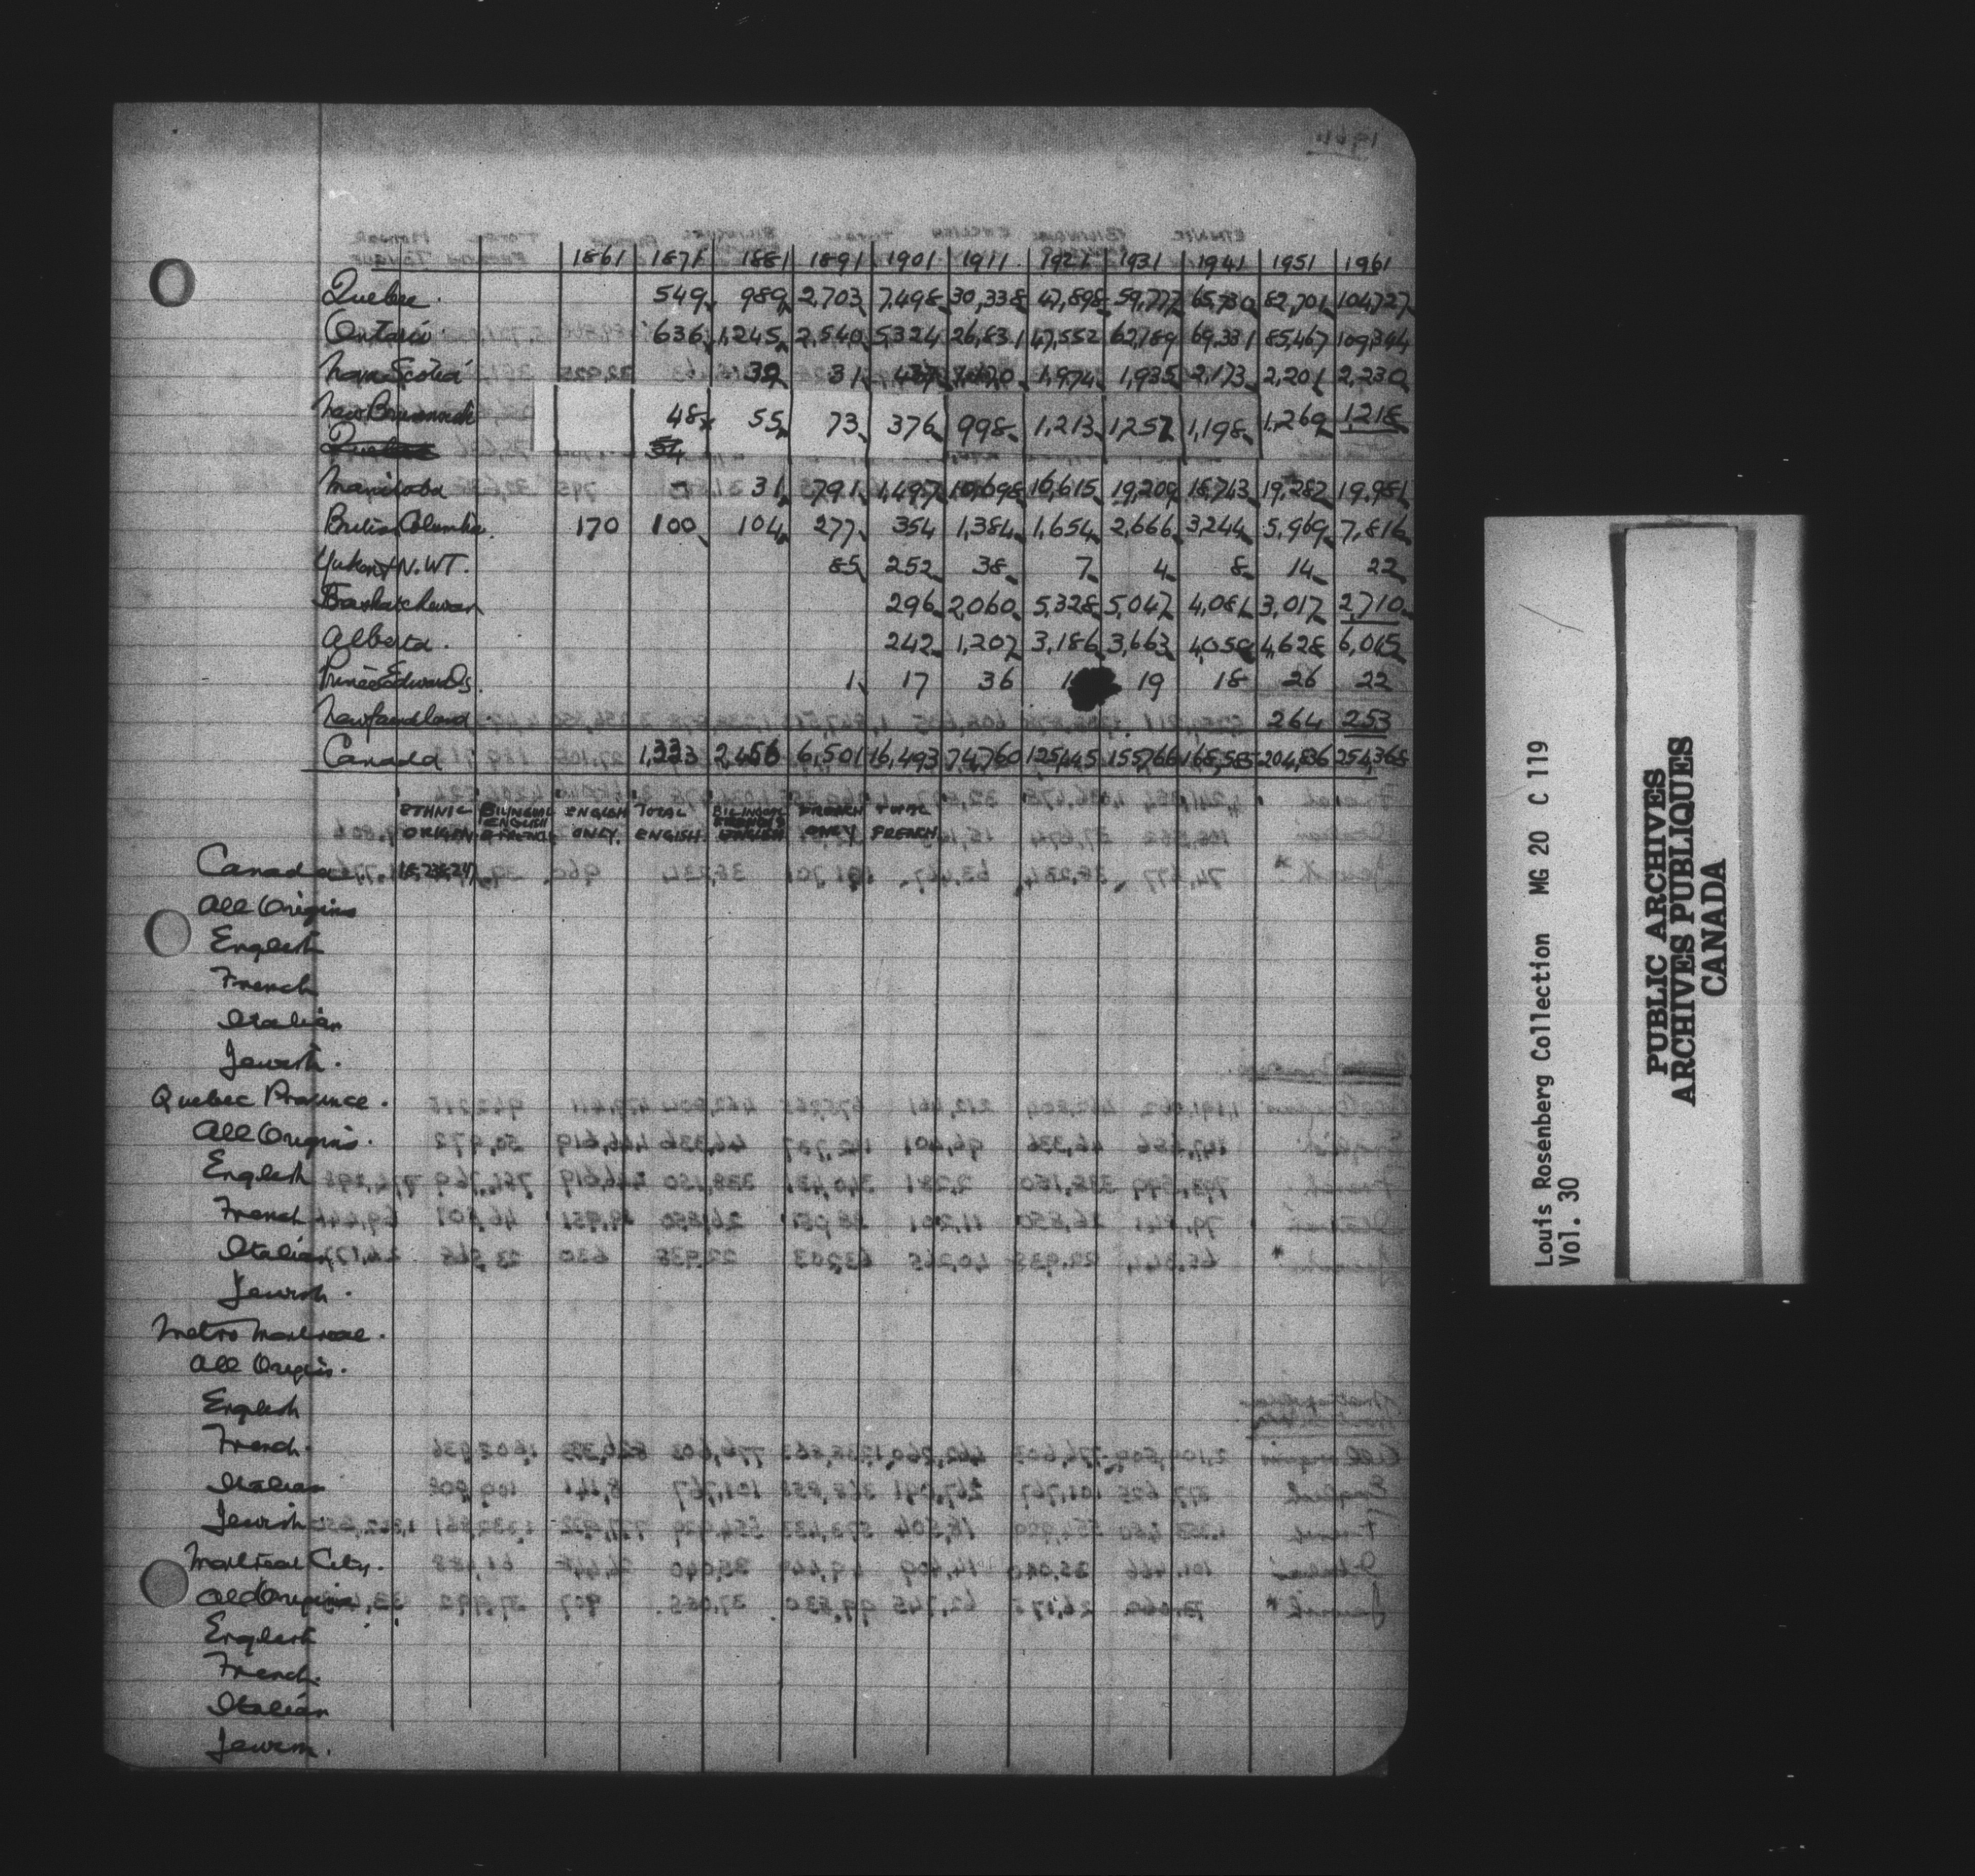 1861 1871 1881 1891 1901 1911 1921 1931 1941 1951 1961
Quebec. 549 989 2,703 7,498 30,338 47,898 59,777 65,730 82,701 104,727
Ontario 636 1,245 2,540 5,324 26,831 47,552 62,789 69,331 85,467 109,344
Nova Scotia 39 31 437 1,974 1,935 2,173 2,201 2,230
New Brunswick 48 55 73 376 998 1,213 1,257 1,198 1,269 1,218
Manitoba 31 791 1,497 10,698 16,615 19,209 18,743 19,282 19,981
British Columbia. 170 100 104 277 354 1,384 1,654 2,666 3,244 5,969 7,816
Yukon & N.W.T. 85 252 38 7 4 8 14 22
Saskatchewan 296 2,060 5,328 5,047 4,081 3,017 2,710
Alberta. 242 1,207 3,186 3,663 4,059 4,628 6,045
Prince Edward Is. 1 17 36 19 18 26 22
Newfoundland. 264 253
Canada 1,333 2,456 6,501 16,493 74,760 125,445 155,766 168,585 204,836 254,368
ETHNIC ORIGIN BILINGUAL ENGLISH & FRENCH ENGLISH ONLY. TOTAL ENGLISH. BILINGUAL FRENCH & ENGLISH FRENCH ONLY TOTAL FRENCH
Canada
All Origins
English
French
Italian
Jewish.
Quebec Province.
All Origins.
English
French
Italian
Jewish.
Metro Montreal.
All Origins.
English
French.
Italian
Jewish
Montreal City.
All Origins
English
French.
Italian
Jewish.
Louis Rosenberg Collection MG 20 C 119
Vol. 30
PUBLIC ARCHIVES
ARCHIVES PUBLIQUES
CANADA